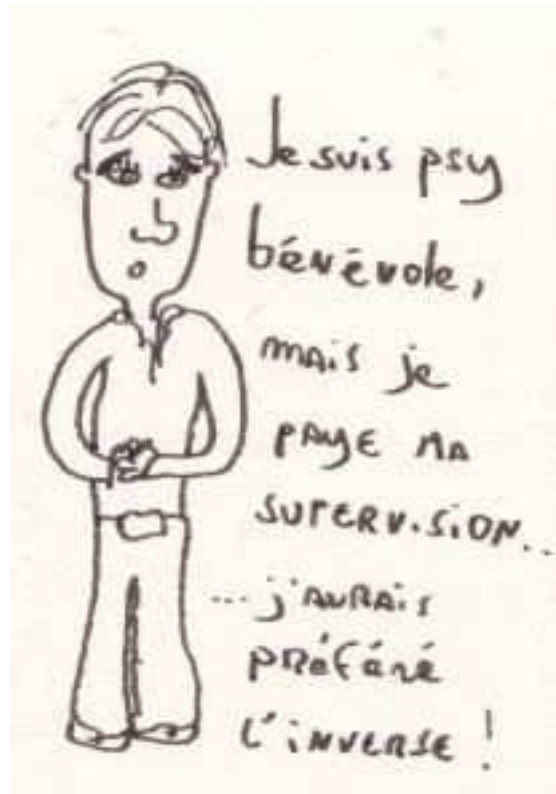 Je suis psy
bénévole,
mais je
paye ma
supervision...
...j'aurais
préféré
l'inverse !